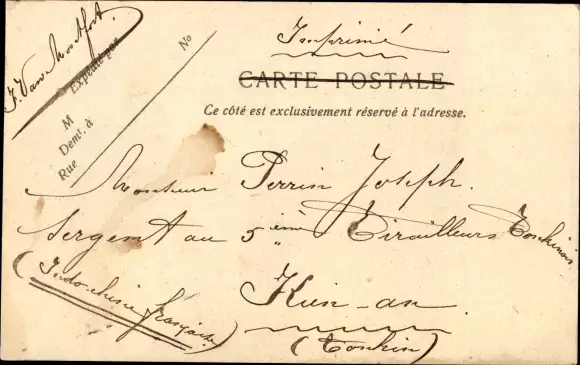 J. Van Montfort.
Expédié par
M
Demt. à
Rue
No
Imprimé
CARTE POSTALE
Ce côté est exclusivement réservé à l'adresse.
Monsieur Perrin Joseph.
Sergent au 5ième Tirailleurs Tonkinois
(Indo-chine française)
Kien-an.
(Tonkin)